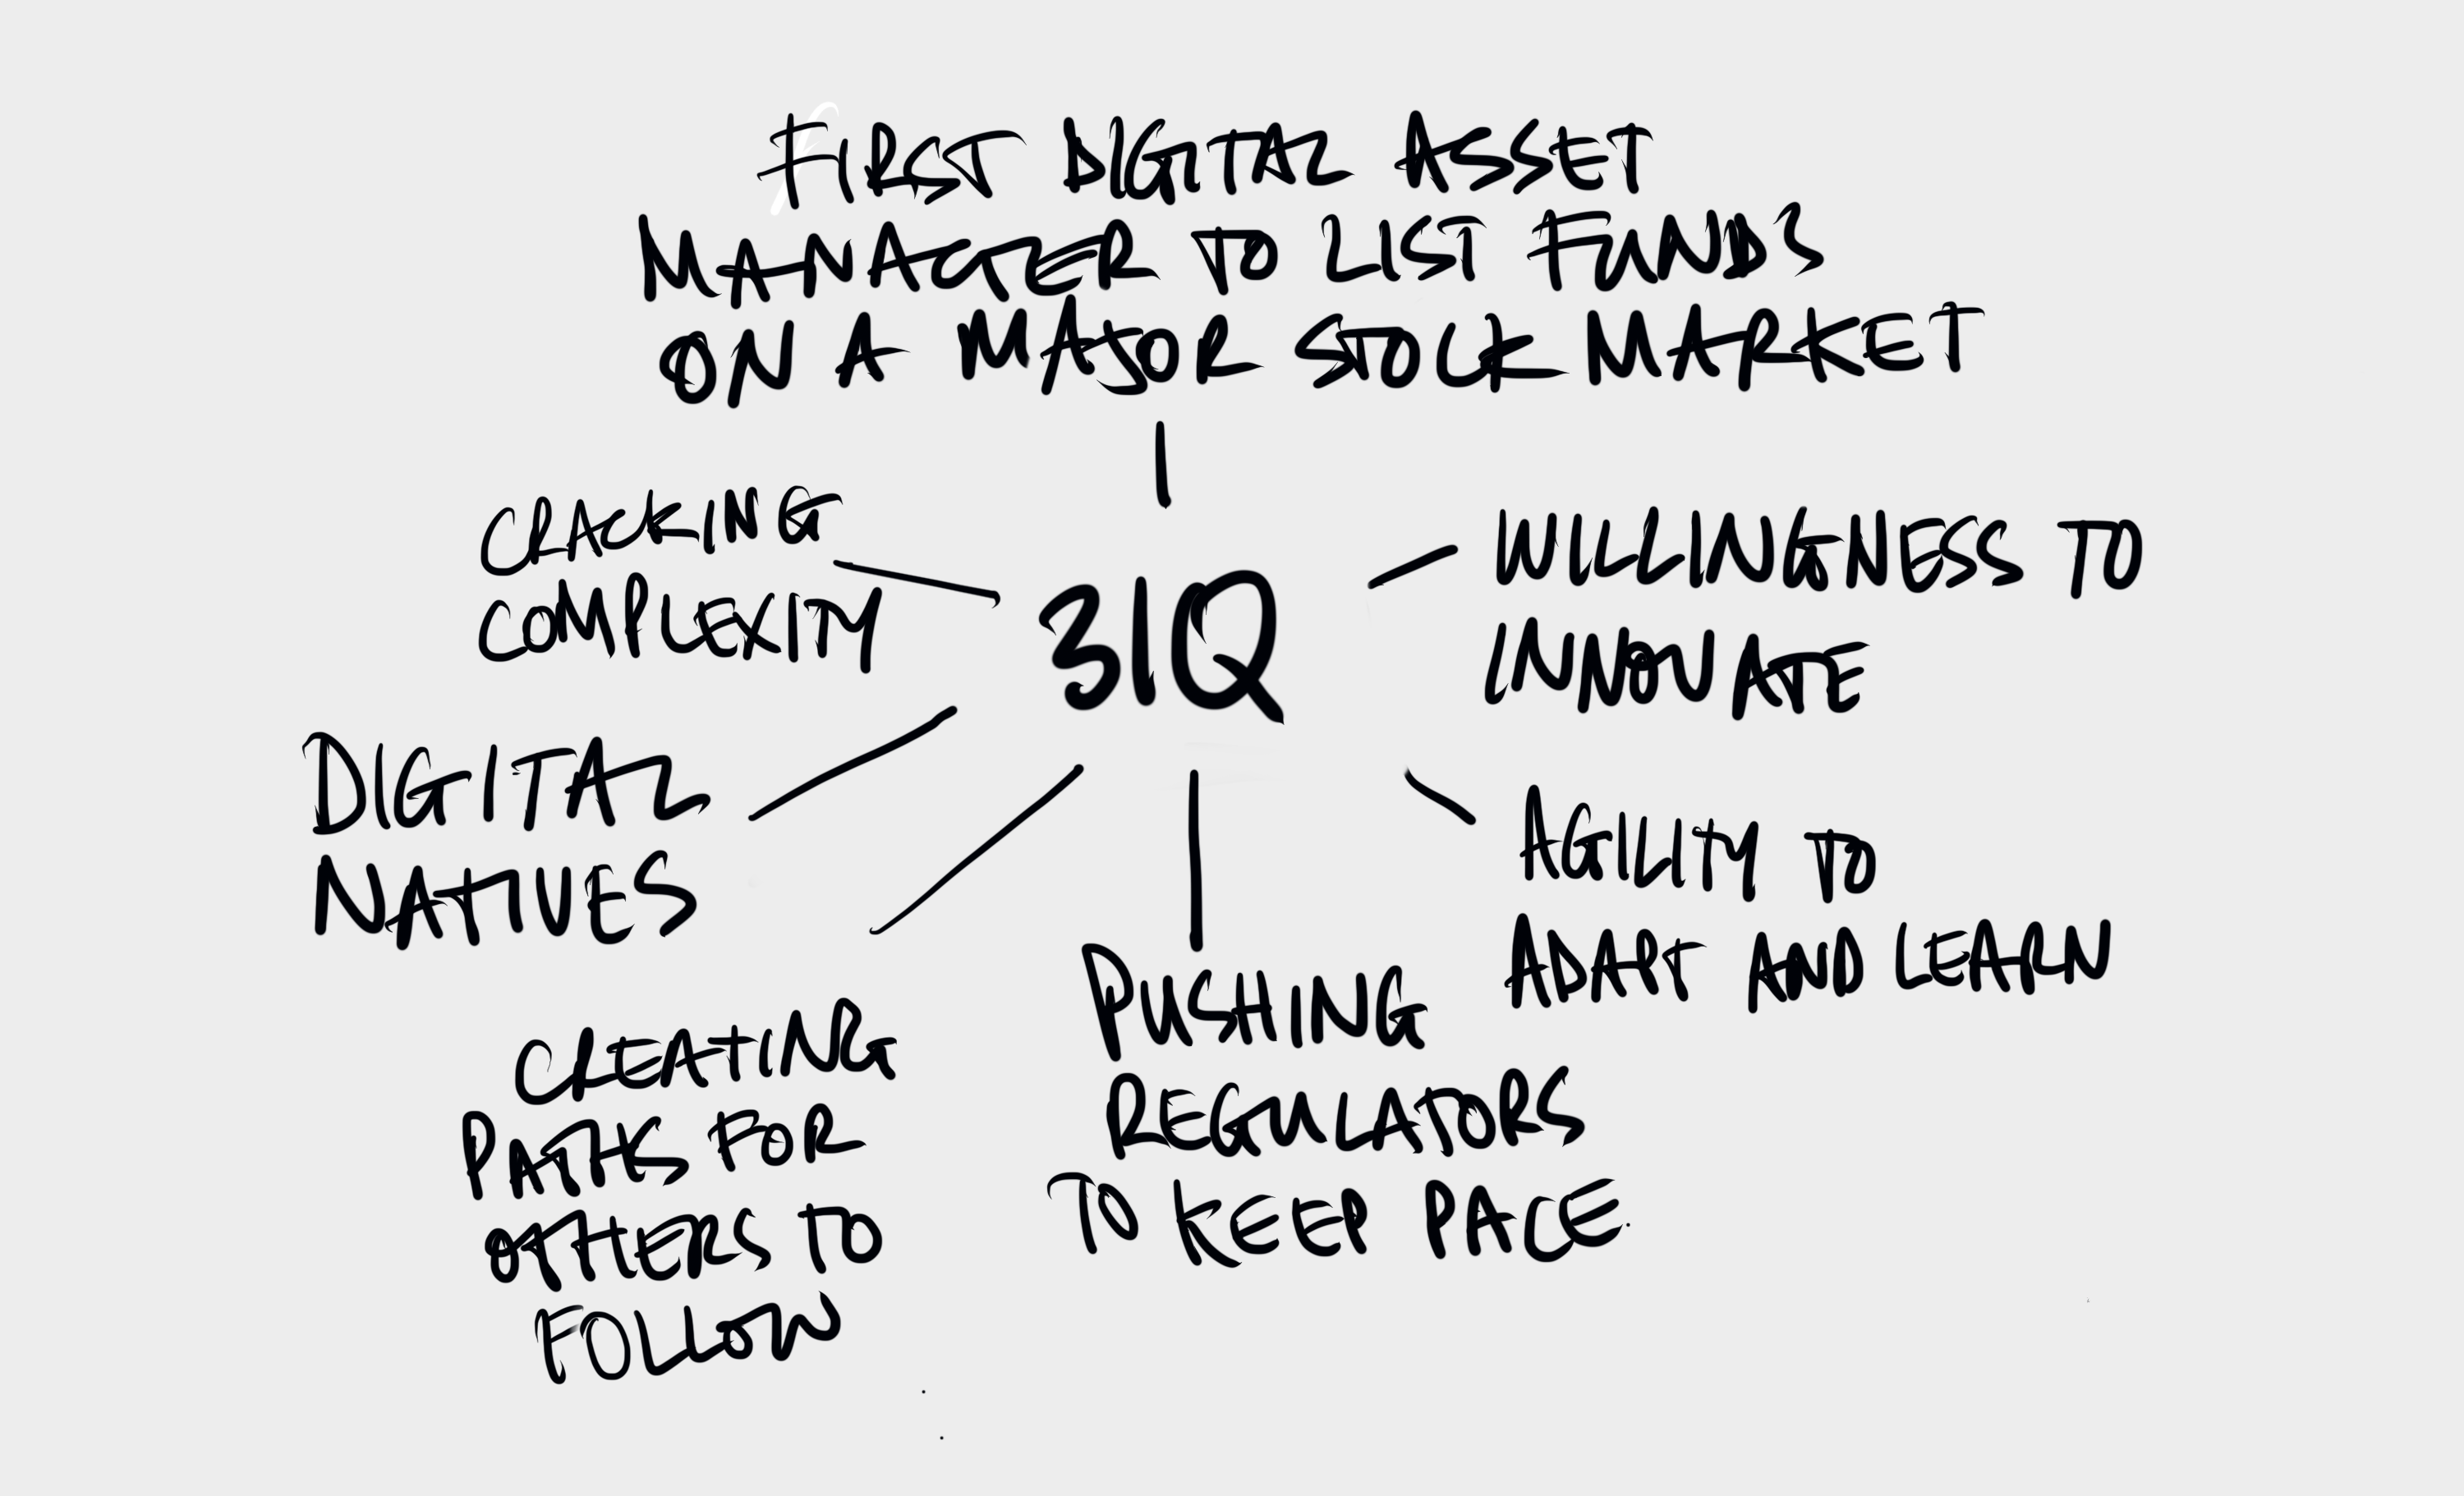 FIRST DIGITAL ASSET
MANAGER TO LIST FUNDS
ON A MAJOR STOCK MARKET
CRACKING
COMPLEXITY
3IQ
WILLINGNESS TO
INNOVATE
DIGITAL
NATIVES
AGILITY TO
ADAPT AND LEARN
CREATING
PATHS FOR
OTHERS TO
FOLLOW
PUSHING
REGULATORS
TO KEEP PACE.